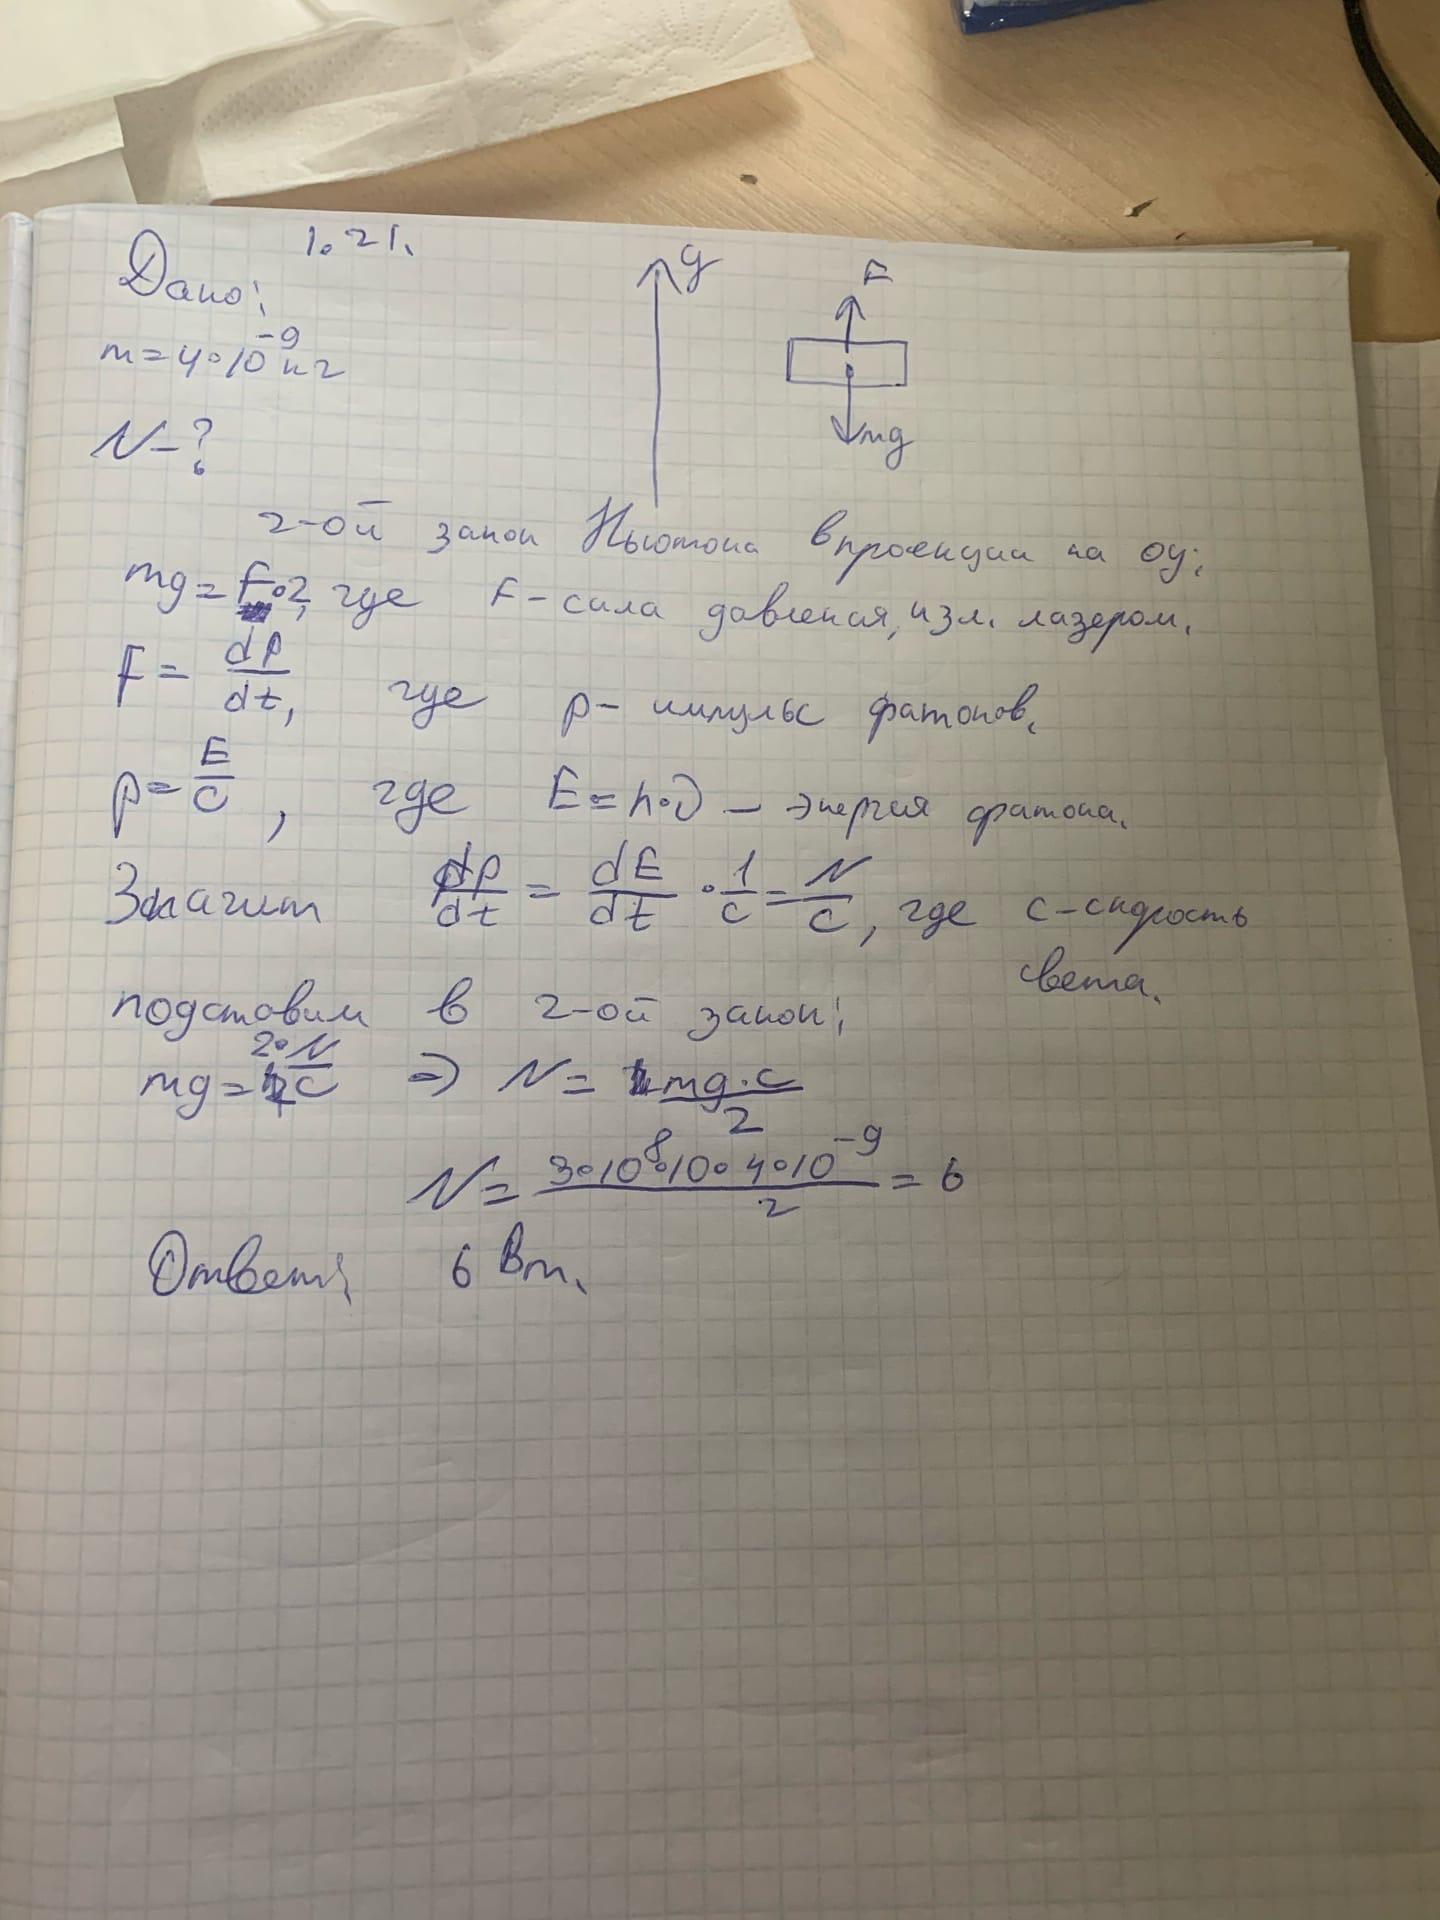 1.21.
Дано:
m=4·10⁻⁹ кг
N-?
y
F
mg
2-ой закон Ньютона в проекции на оу:
mg=F·2, где F-сила давления, изл. лазером.
F=dp/dt, где p- импульс фатонов.
p=E/c, где E=h·ν – энергия фатона.
Значит dp/dt = dE/dt · 1/c = N/c, где c-скорость
света.
подставим в 2-ой закон:
mg=2·N/c ⇒ N= mg·c/2
N= 3·10⁸·10·4·10⁻⁹/2 = 6
Ответ: 6 Вт.